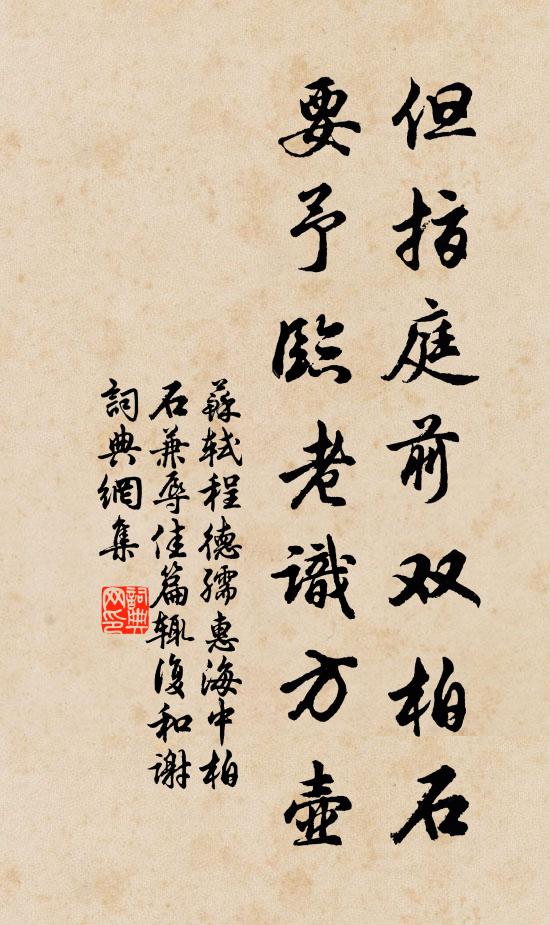 但指庭前双柏石
要予臨老識方壺
蘇軾程德孺惠海中柏
石兼辱佳篇輒復和謝
詞典網集
詞典
网印